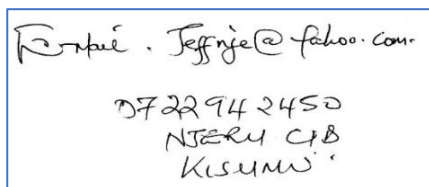 Email . Jeffnje@yahoo.com.
0722942450
NJERU CIB
KISUMU.